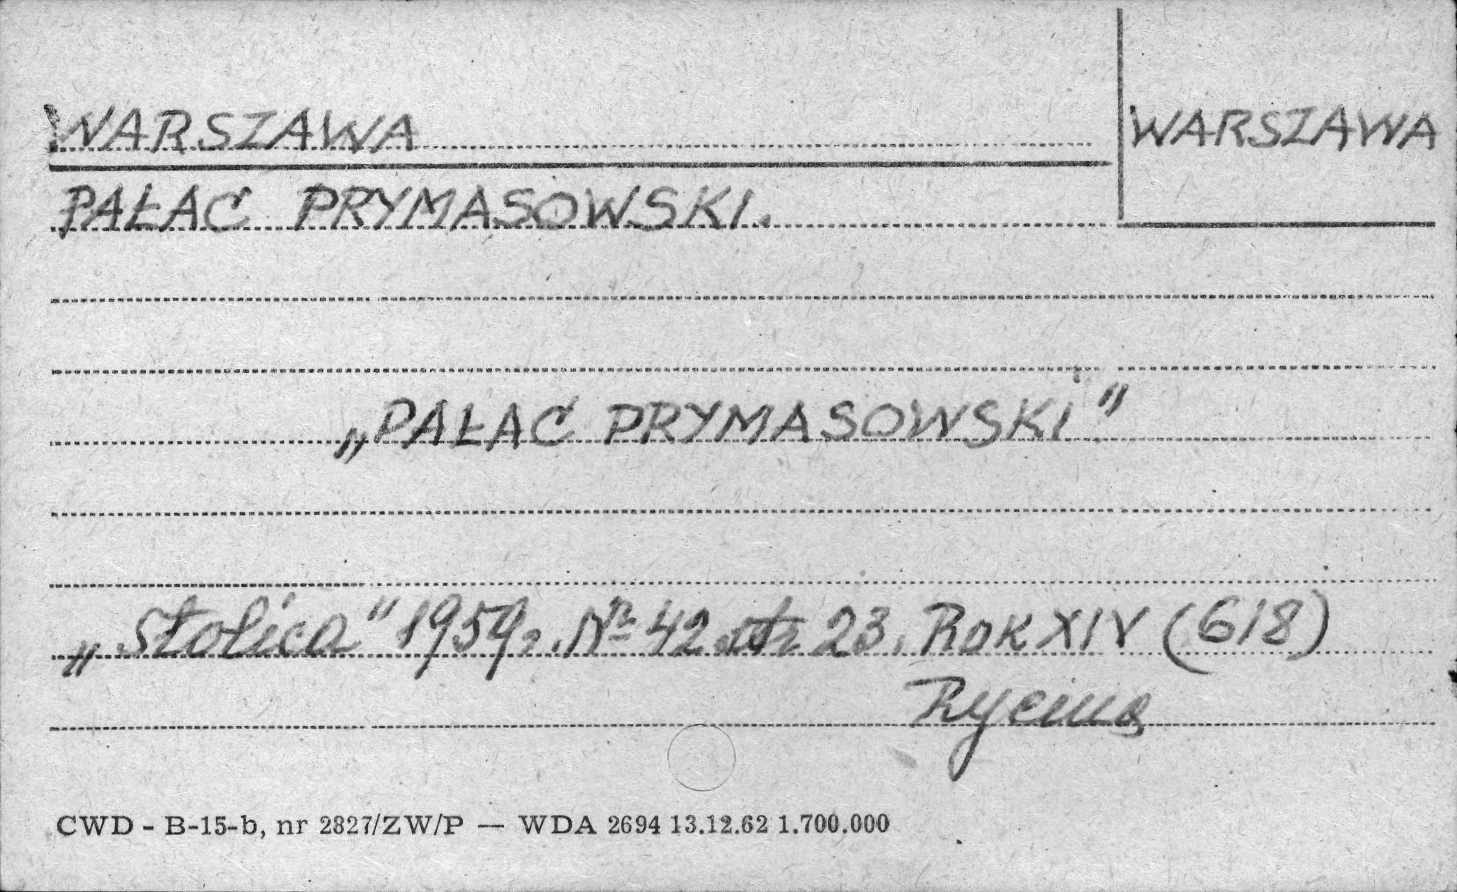 WARSZAWA
WARSZAWA
PAŁAC PRYMASOWSKI.
„PAŁAC PRYMASOWSKI"
„Stolica" 1959r. Nr 42 str 23. Rok XIV (618)
Rycina
CWD - B-15-b, nr 2827/ZW/P — WDA 2694 13.12.62 1.700.000